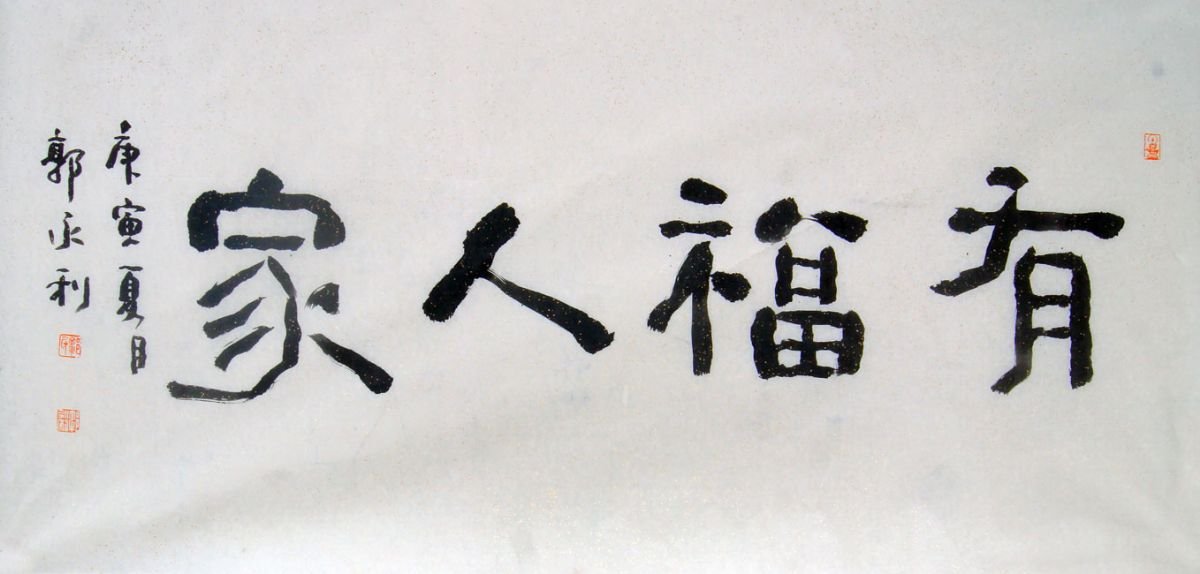 有福人家
庚寅夏月
郭永利